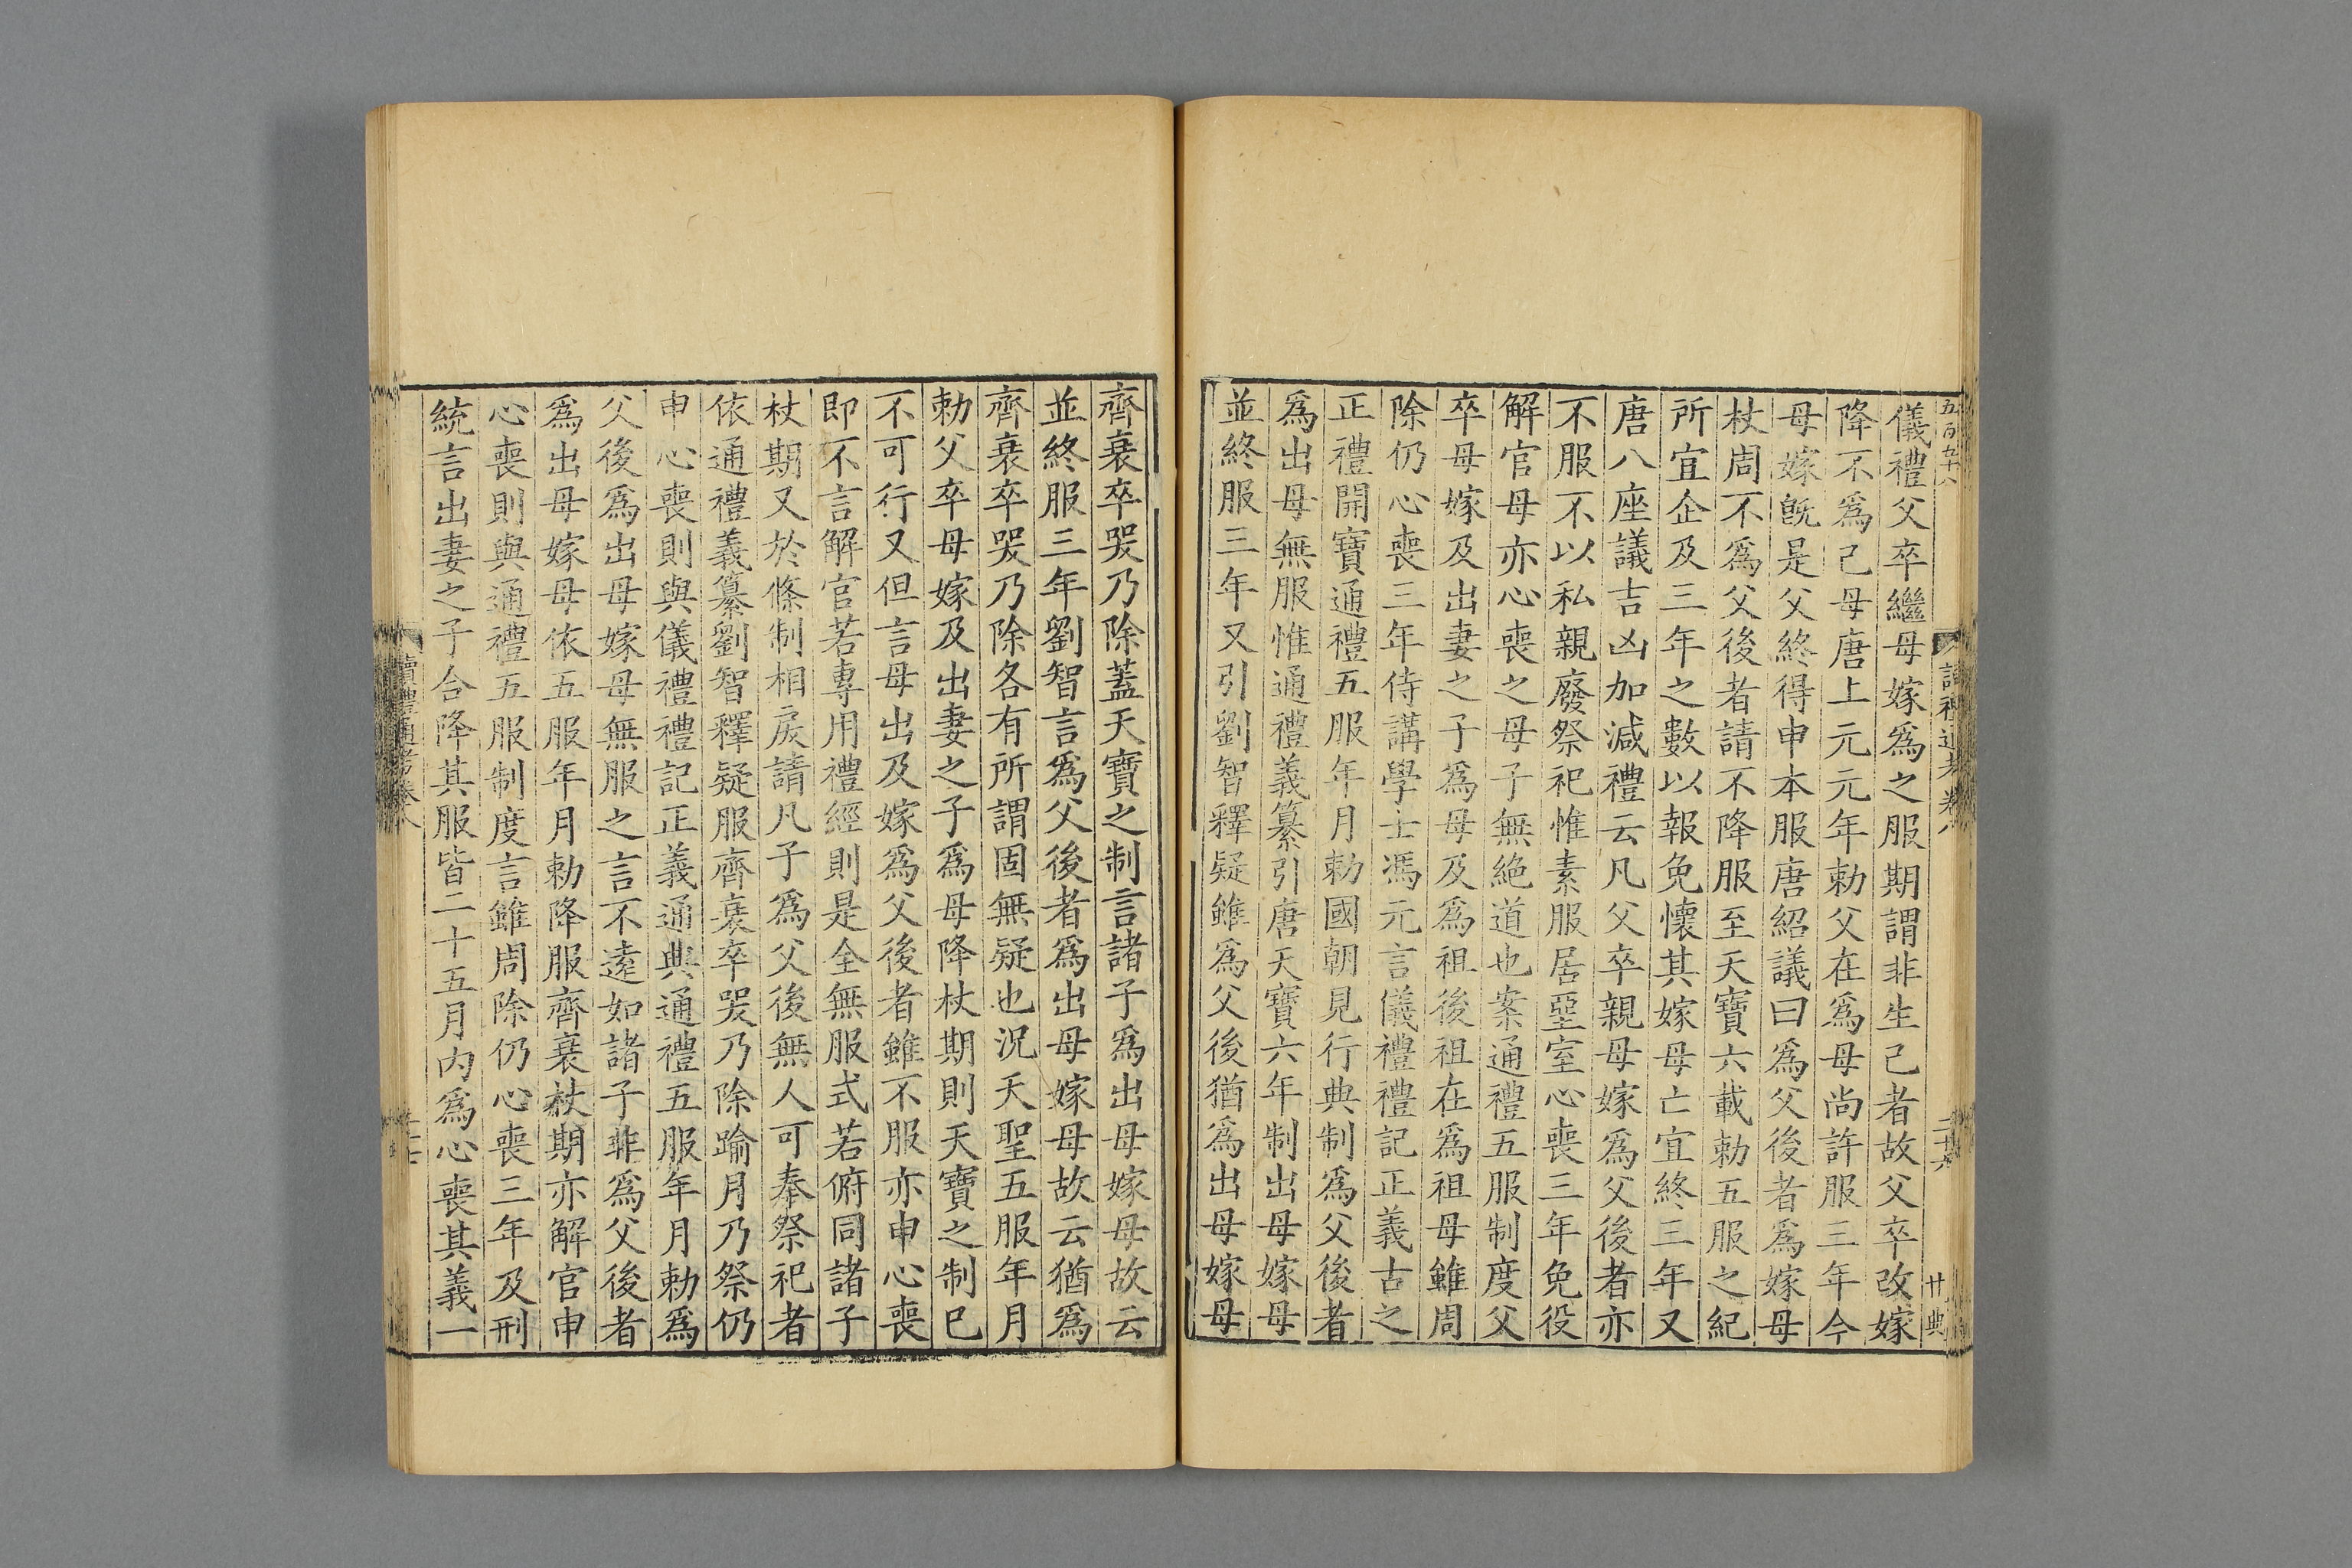 五百五十八
讀禮通考卷八
二十六
廿
典
儀禮父卒繼母嫁爲之服期謂非生己者故父卒改嫁
降不爲己母唐上元元年勅父在爲母尚許服三年今
母嫁旣是父終得申本服唐紹議曰爲父後者爲嫁母
杖周不爲父後者請不降服至天寶六載勅五服之紀
所宜企及三年之數以報免懷其嫁母亡宜終三年又
唐八座議吉凶加減禮云凡父卒親母嫁爲父後者亦
不服不以私親廢祭祀惟素服居堊室心喪三年免役
解官母亦心喪之母子無絶道也案通禮五服制度父
卒母嫁及出妻之子爲母及爲祖後祖在爲祖母雖周
除仍心喪三年侍講學士馮元言儀禮禮記正義古之
正禮開寶通禮五服年月勅國朝見行典制爲父後者
爲出母無服惟通禮義纂引唐天寶六年制出母嫁母
並終服三年又引劉智釋疑雖爲父後猶爲出母嫁母
齊衰卒哭乃除蓋天寶之制言諸子爲出母嫁母故云
並終服三年劉智言爲父後者爲出母嫁母故云猶爲
齊衰卒哭乃除各有所謂固無疑也況天聖五服年月
勅父卒母嫁及出妻之子爲母降杖期則天寶之制已
不可行又但言母出及嫁爲父後者雖不服亦申心喪
即不言解官若專用禮經則是全無服式若俯同諸子
杖期又於條制相戾請凡子爲父後無人可奉祭祀者
依通禮義纂劉智釋疑服齊衰卒哭乃除踰月乃祭仍
申心喪則與儀禮禮記正義通典通禮五服年月勅爲
父後爲出母嫁母無服之言不遠如諸子非爲父後者
爲出母嫁母依五服年月勅降服齊衰杖期亦解官申
心喪則與通禮五服制度言雖周除仍心喪三年及刑
統言出妻之子合降其服皆二十五月内爲心喪其義一
讀禮通考卷八